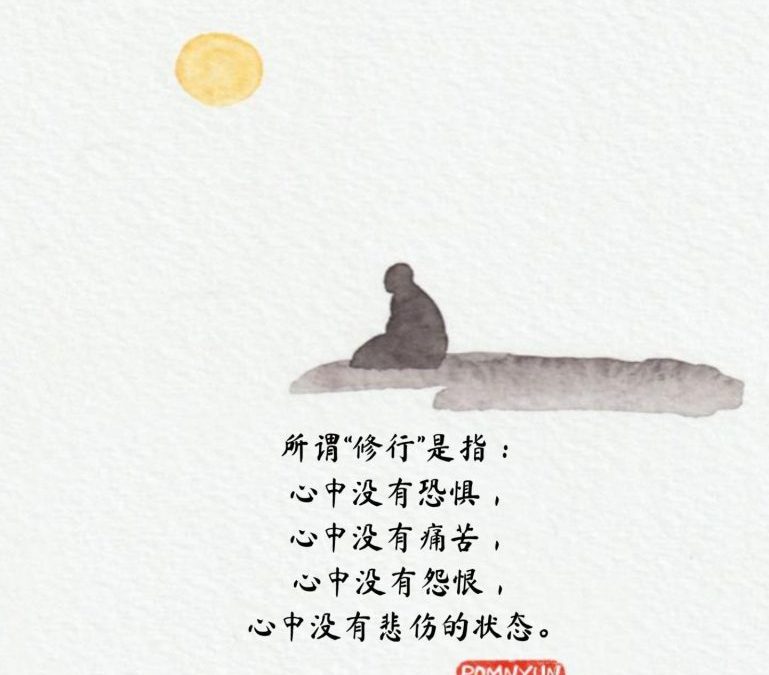 所谓“修行”是指：
心中没有恐惧，
心中没有痛苦，
心中没有怨恨，
心中没有悲伤的状态。
POMNYUN